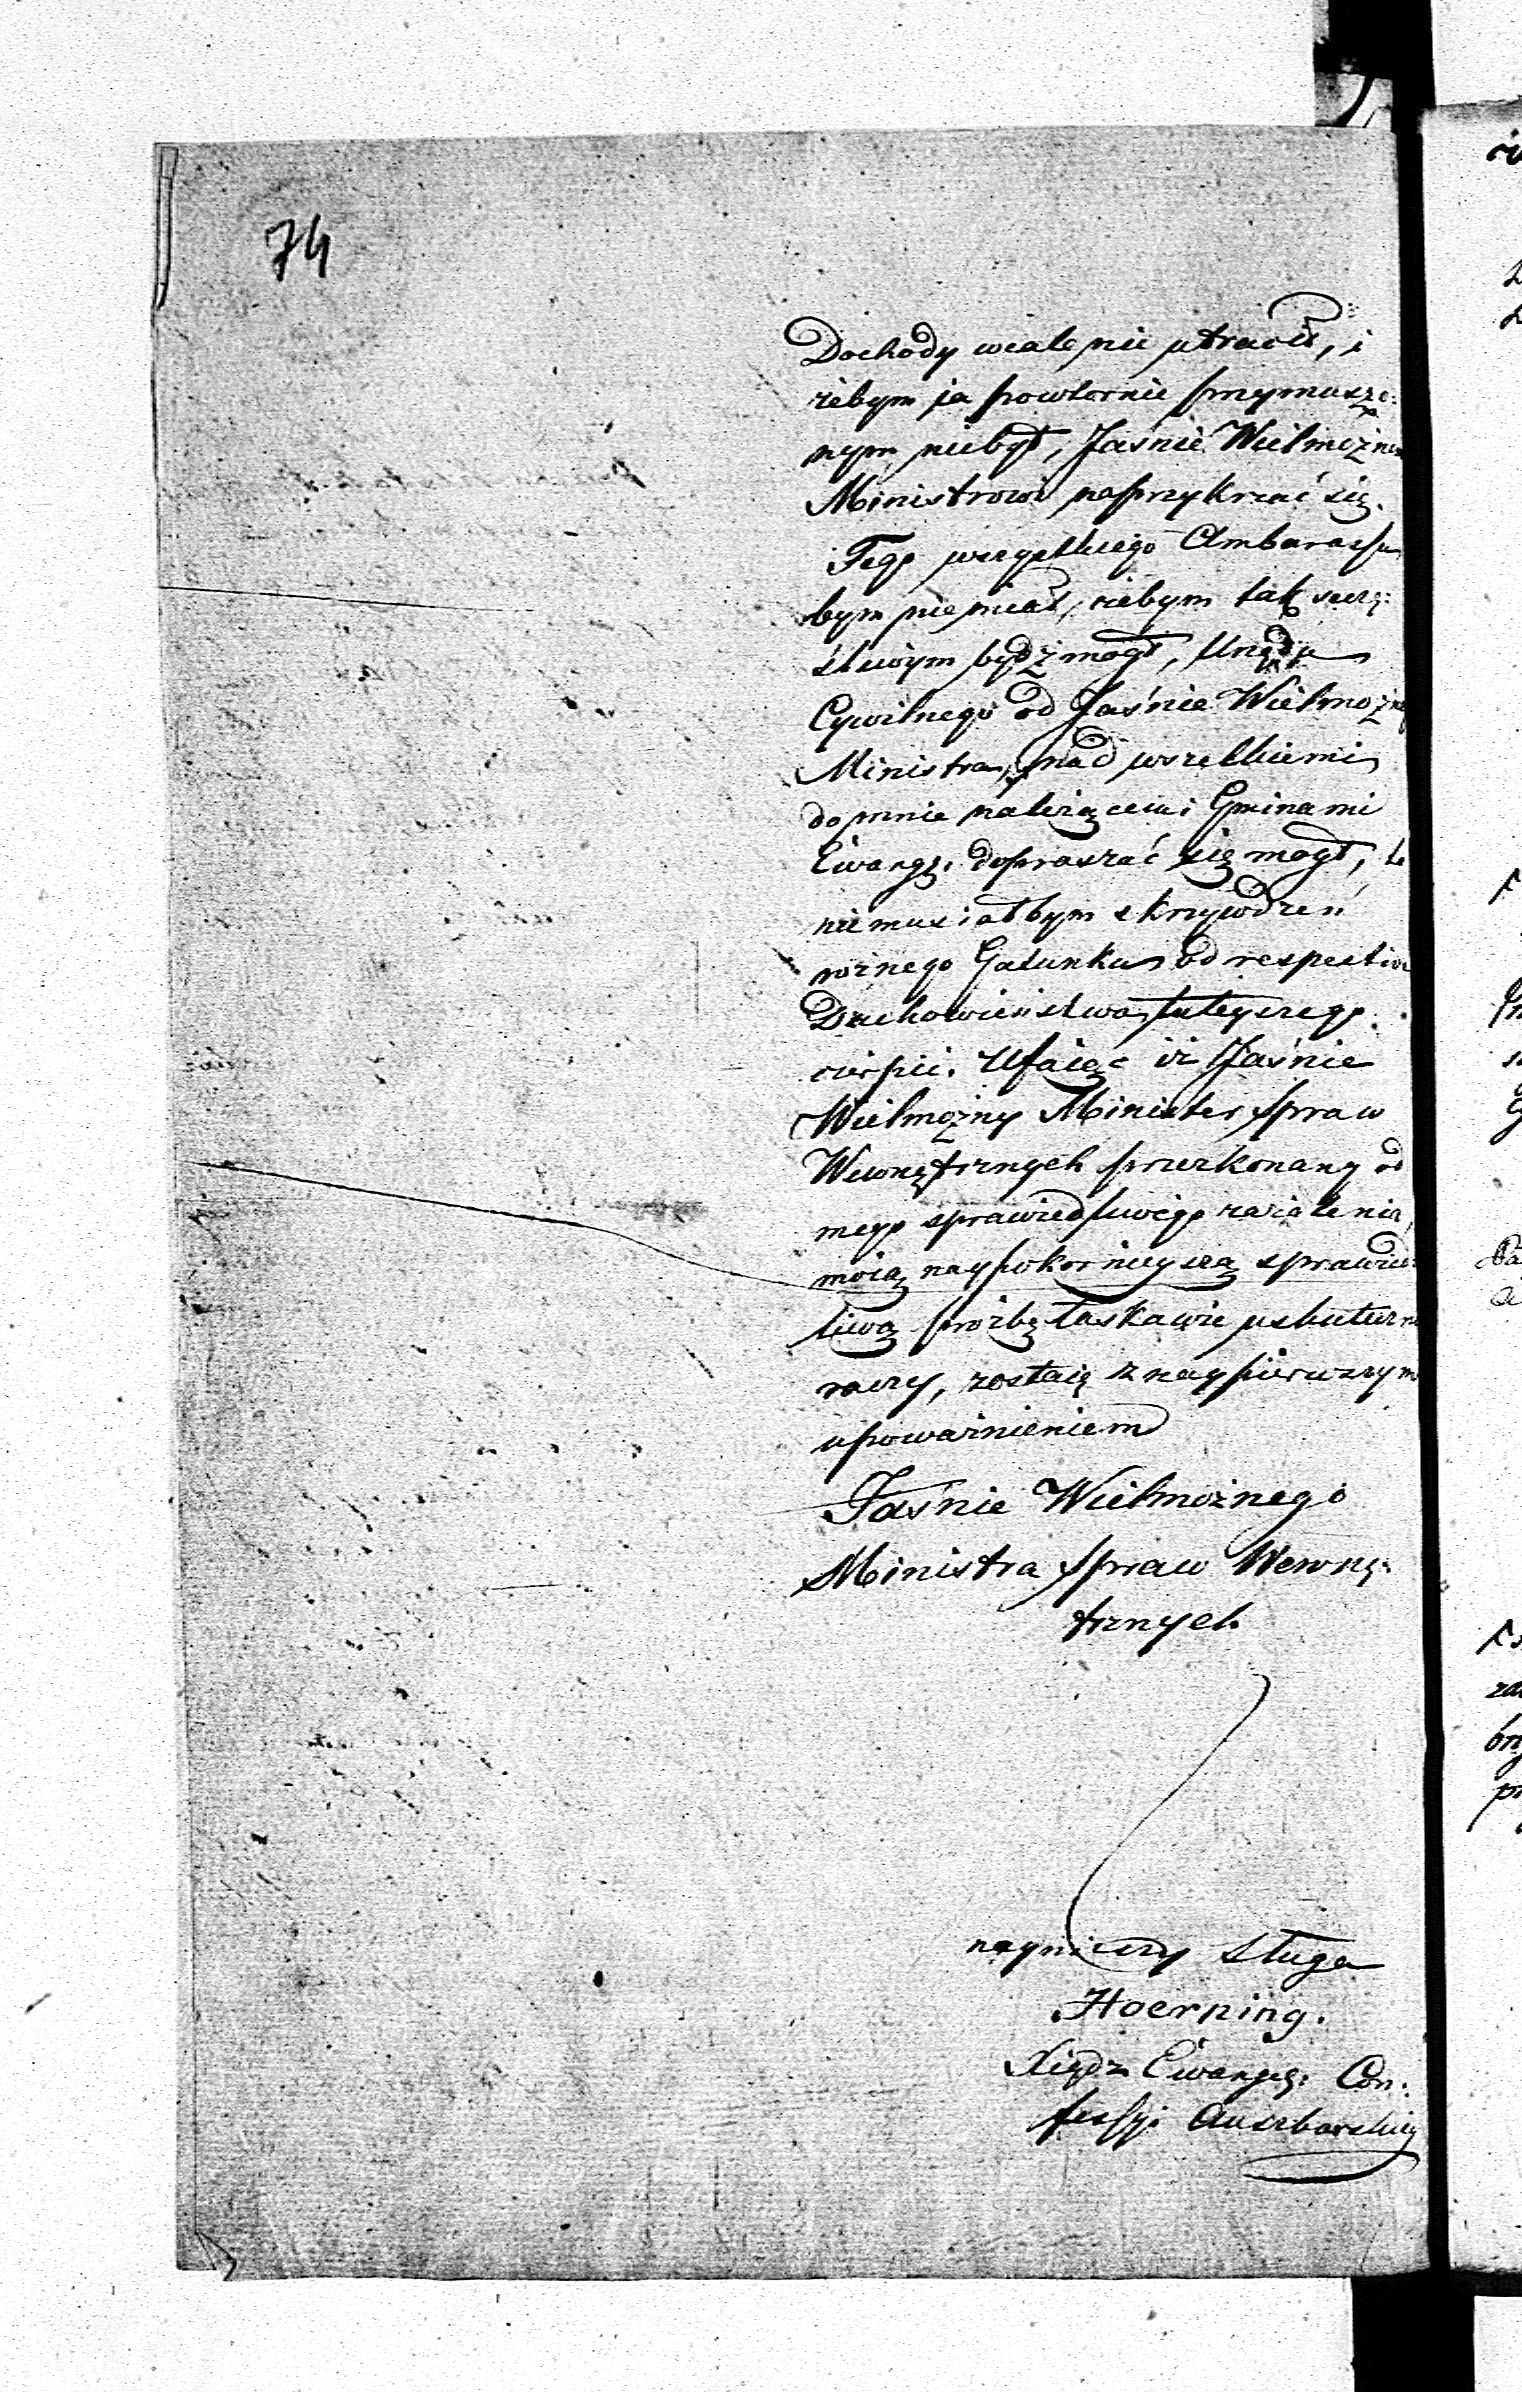 74
Dochody wcale nie utracił, i
żebym ja powtornie przymuszo:
nym niebył, Jaśnie Wielmożne
Ministrowi naprzykrzać się.
Tego wszystkiego Ambarassu
bym nie miał, żebym tak szczę:
śliwym bydź mogł, Urzędu
Cywilnego od Jaśnie Wielmożne
Ministra, nad wszelkiemi
do mnie należącemi Gminami
Ewang: dopraszać się mogł, 
niemusiałbym skrzywdzeń
rożnego Gatunku od respective
Duchowieństwa tuteyszego
cierpić. Ufaiąc iż Jaśnie
Wielmożny Minister Spraw
Wewnętrznych przekonany od
mego sprawiedliwego zażalenia,
moią naypokornieyszą sprawied:
liwą prożbę łaskawie uskutecz
raczy, zostaię z naypierwszym
upoważnieniem
Jaśnie Wielmożnego
Ministra Spraw Wewnę:
trznych
nayniższy Sługa
Hoerning.
Xiądz Ewangel: Con:
fessyi Auszborskiey